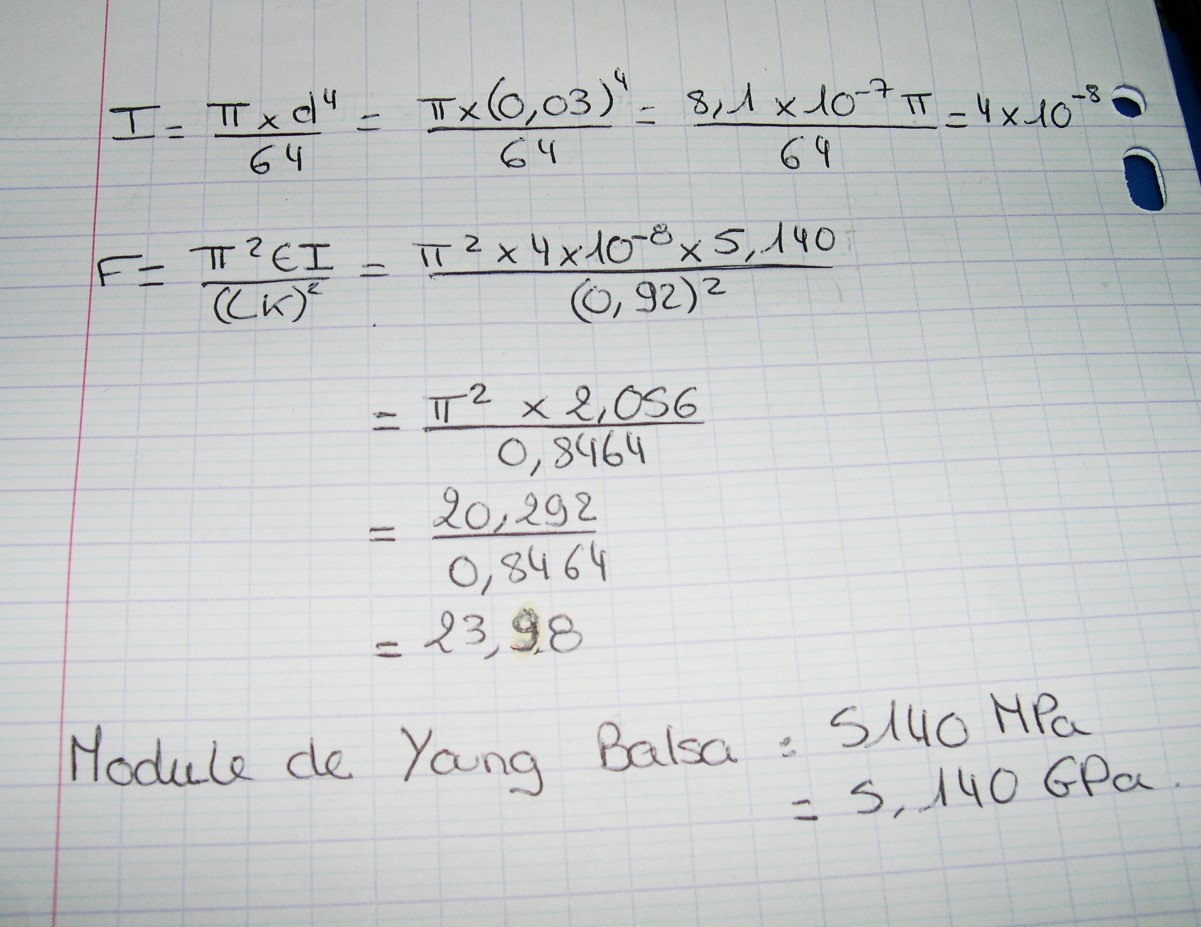 I = π × d⁴ / 64 = π × (0,03)⁴ / 64 = 8,1 × 10⁻⁷ π / 64 = 4 × 10⁻⁸
F = π² E I / (LK)² = π² × 4 × 10⁻⁸ × 5,140 / (0,92)²
= π² × 2,056 / 0,8464
= 20,292 / 0,8464
= 23,98
Module de Yang Balsa = 5140 MPa
= 5,140 GPa.